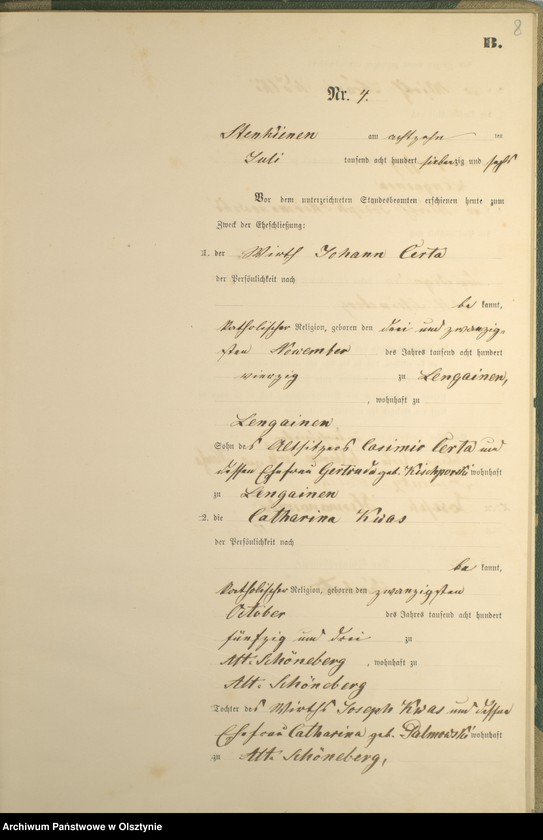 8
B.
Nr. 4.
Stenkienen am achtzehn ten
Juli tausend acht hundert siebenzig und sechs
Vor dem unterzeichneten Standesbeamten erschienen heute zum
Zweck der Eheschließung:
1. der Wirth Johann Certa
der Persönlichkeit nach
be kannt,
katholischer Religion, geboren den drei und zwanzig-
sten November des Jahres tausend acht hundert
vierzig zu Lengainen,
, wohnhaft zu
Lengainen
Sohn des Altsitzers Casimir Certa und
dessen Ehefrau Gertruda geb. wohnhaft
zu Lengainen
2. die Catharina Kwas
der Persönlichkeit nach
be kannt,
katholischer Religion, geboren den zwanzigsten
October des Jahres tausend acht hundert
fünfzig und drei zu
Alt-Schöneberg , wohnhaft zu
Alt-Schöneberg
Tochter des Wirths Joseph Kwas und dessen
Ehefrau Catharina geb. Palmowski wohnhaft
zu Alt-Schöneberg,
Archiwum Państwowe w Olsztynie